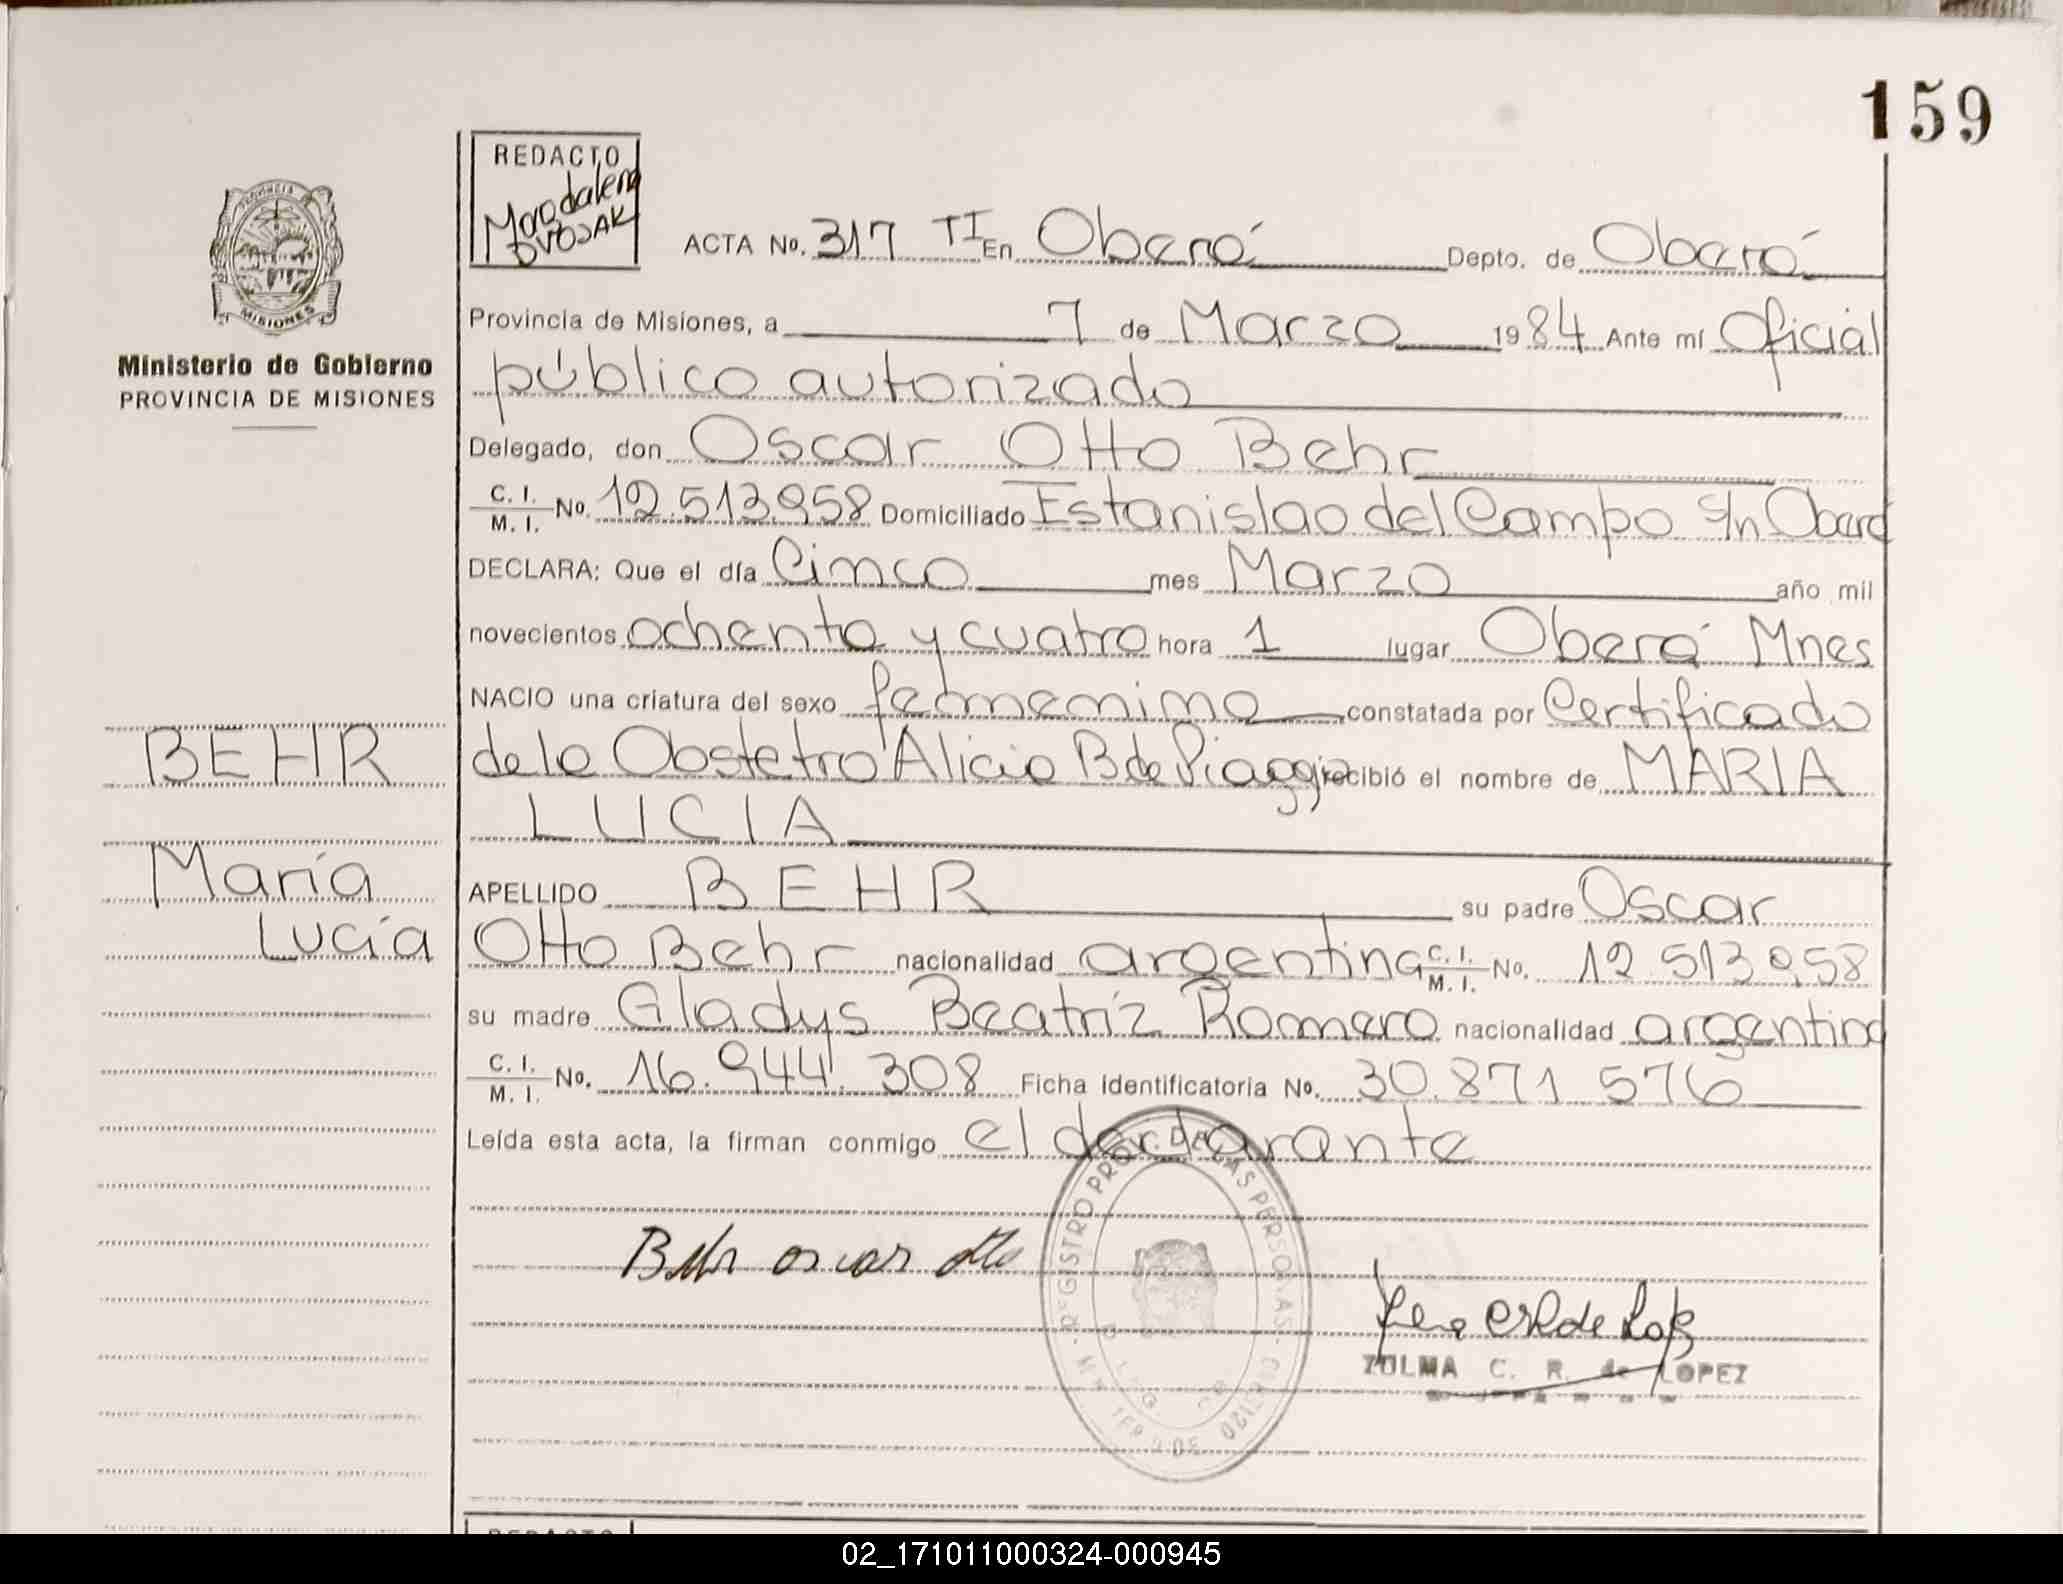 159
REDACTO
Magdalena
DVOJAK
PROVINCIA
MISIONES
Ministerio de Gobierno
PROVINCIA DE MISIONES
ACTA No. 317 TI En Oberá Depto. de Oberá
Provincia de Misiones, a 7 de Marzo 1984 Ante mí Oficial
público autorizado
Delegado, don Oscar Otto Behr
C. I. / M. I. No. 12.513.958 Domiciliado Estanislao del Campo S/n Oberá
DECLARA: Que el día Cinco mes Marzo año mil
novecientos ochenta y cuatro hora 1 lugar Oberá Mnes
NACIO una criatura del sexo femenino constatada por Certificado
de la Obstetra Alicia B de Piaggio recibió el nombre de MARIA
LUCIA
BEHR
María
Lucía
APELLIDO BEHR su padre Oscar
Otto Behr nacionalidad argentina C. I. / M. I. No. 12.513.958
su madre Gladys Beatriz Romero nacionalidad argentina
C. I. / M. I. No. 16.944.308 Ficha identificatoria No. 30.871.576
Leída esta acta, la firman conmigo el declarante
Behr oscar otto
REGISTRO PROV. DE LAS PERSONAS
ZULMA C. R. de LOPEZ
REDACTO
02_171011000324-000945